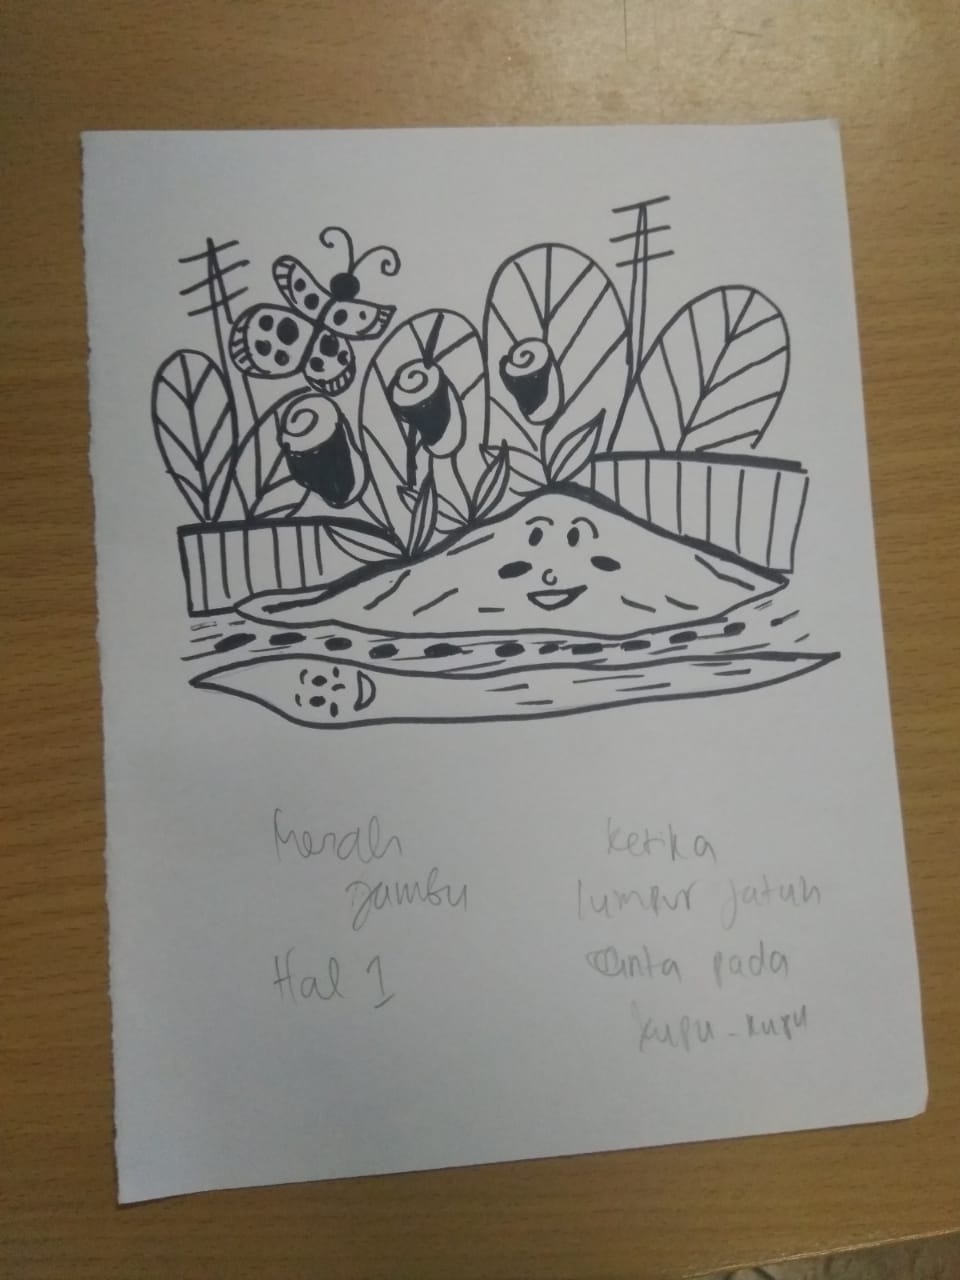 Merah
Jambu
Hal 1
ketika
lumpur jatuh
Cinta pada
kupu-kupu